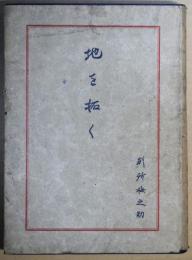 地を拓く
別所梅之助